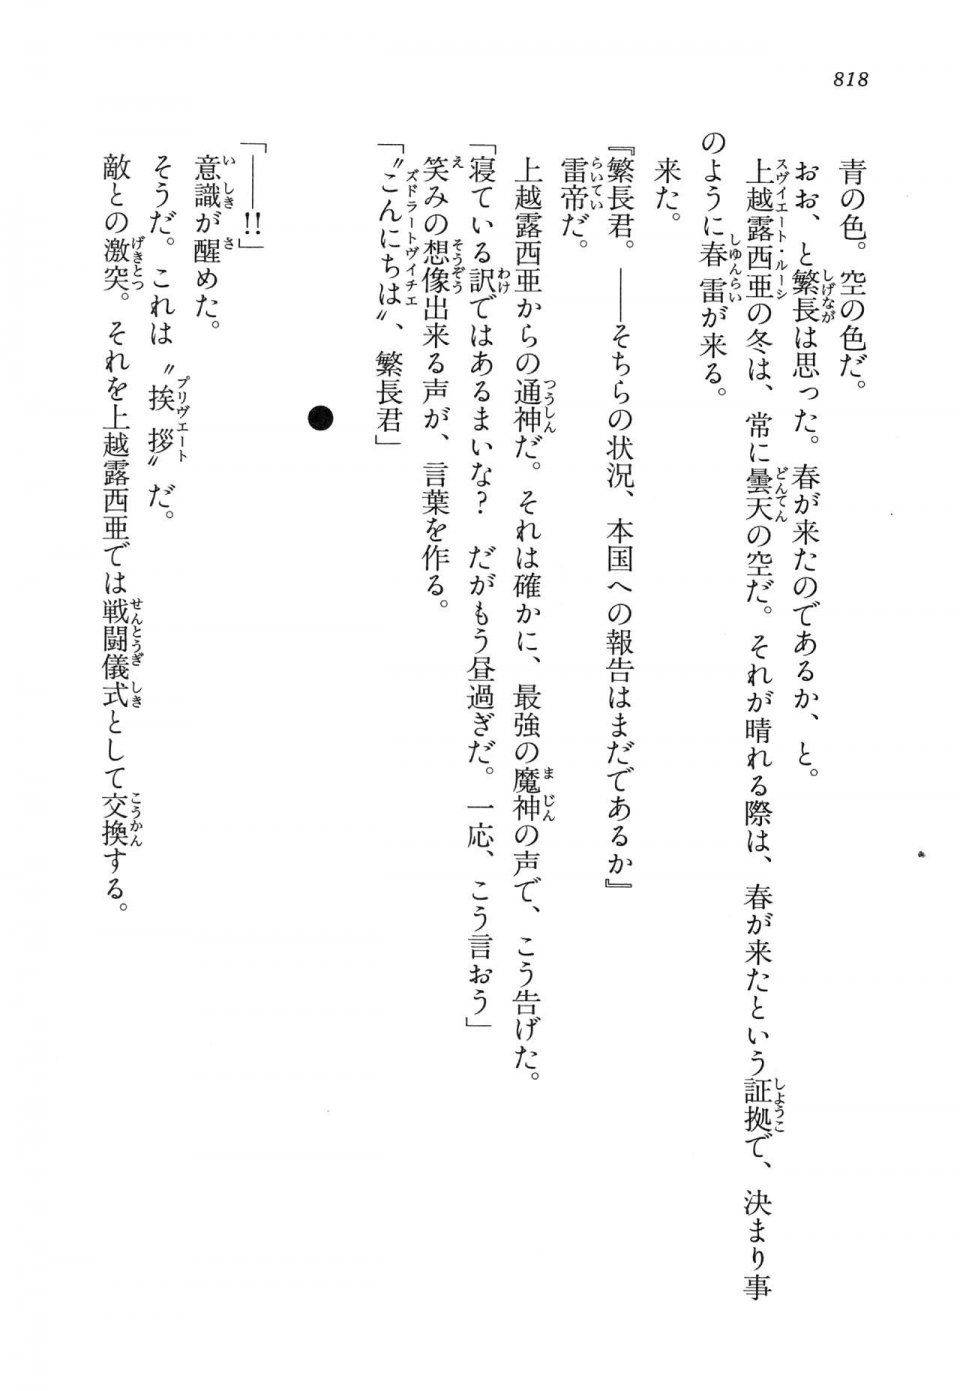 818
青の色。空の色だ。
おお、と繁長は思った。春が来たのであるか、と。
上越露西亜の冬は、常に曇天の空だ。それが晴れる際は、春が来たという証拠で、決まり事
のように春雷が来る。
来た。
『繁長君。――そちらの状況、本国への報告はまだであるか』
雷帝だ。
上越露西亜からの通神だ。それは確かに、最強の魔神の声で、こう告げた。
「寝ている訳ではあるまいな？　だがもう昼過ぎだ。一応、こう言おう」
笑みの想像出来る声が、言葉を作る。
「〝こんにちは〟、繁長君」
●
「――!!」
意識が醒めた。
そうだ。これは〝挨拶〟だ。
敵との激突。それを上越露西亜では戦闘儀式として交換する。